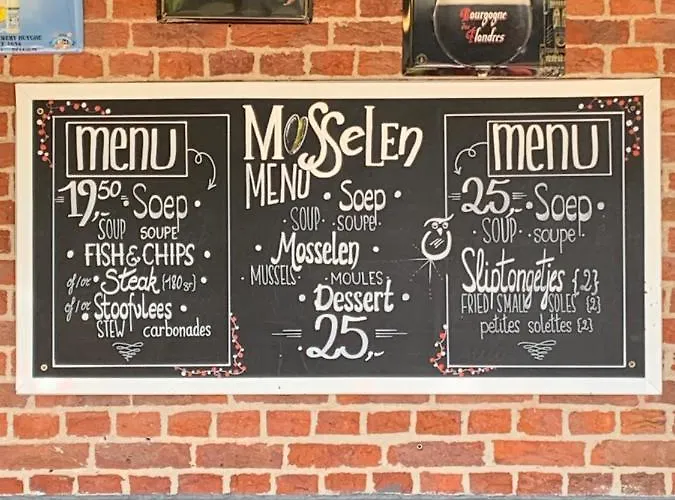 Bourgogne
des
Flandres
menu
19,50 Soep
SOUP SOUPE
FISH & CHIPS
of/or Steak (180 gr)
of/or Stoofvlees
STEW carbonades
MOSSELEN
MENU
Soep
SOUP soupe
Mosselen
MUSSELS MOULES
Dessert
25,-
menu
25,- Soep
SOUP soupe
Sliptongetjes {2}
FRIED SMALL SOLES {2}
petites solettes {2}